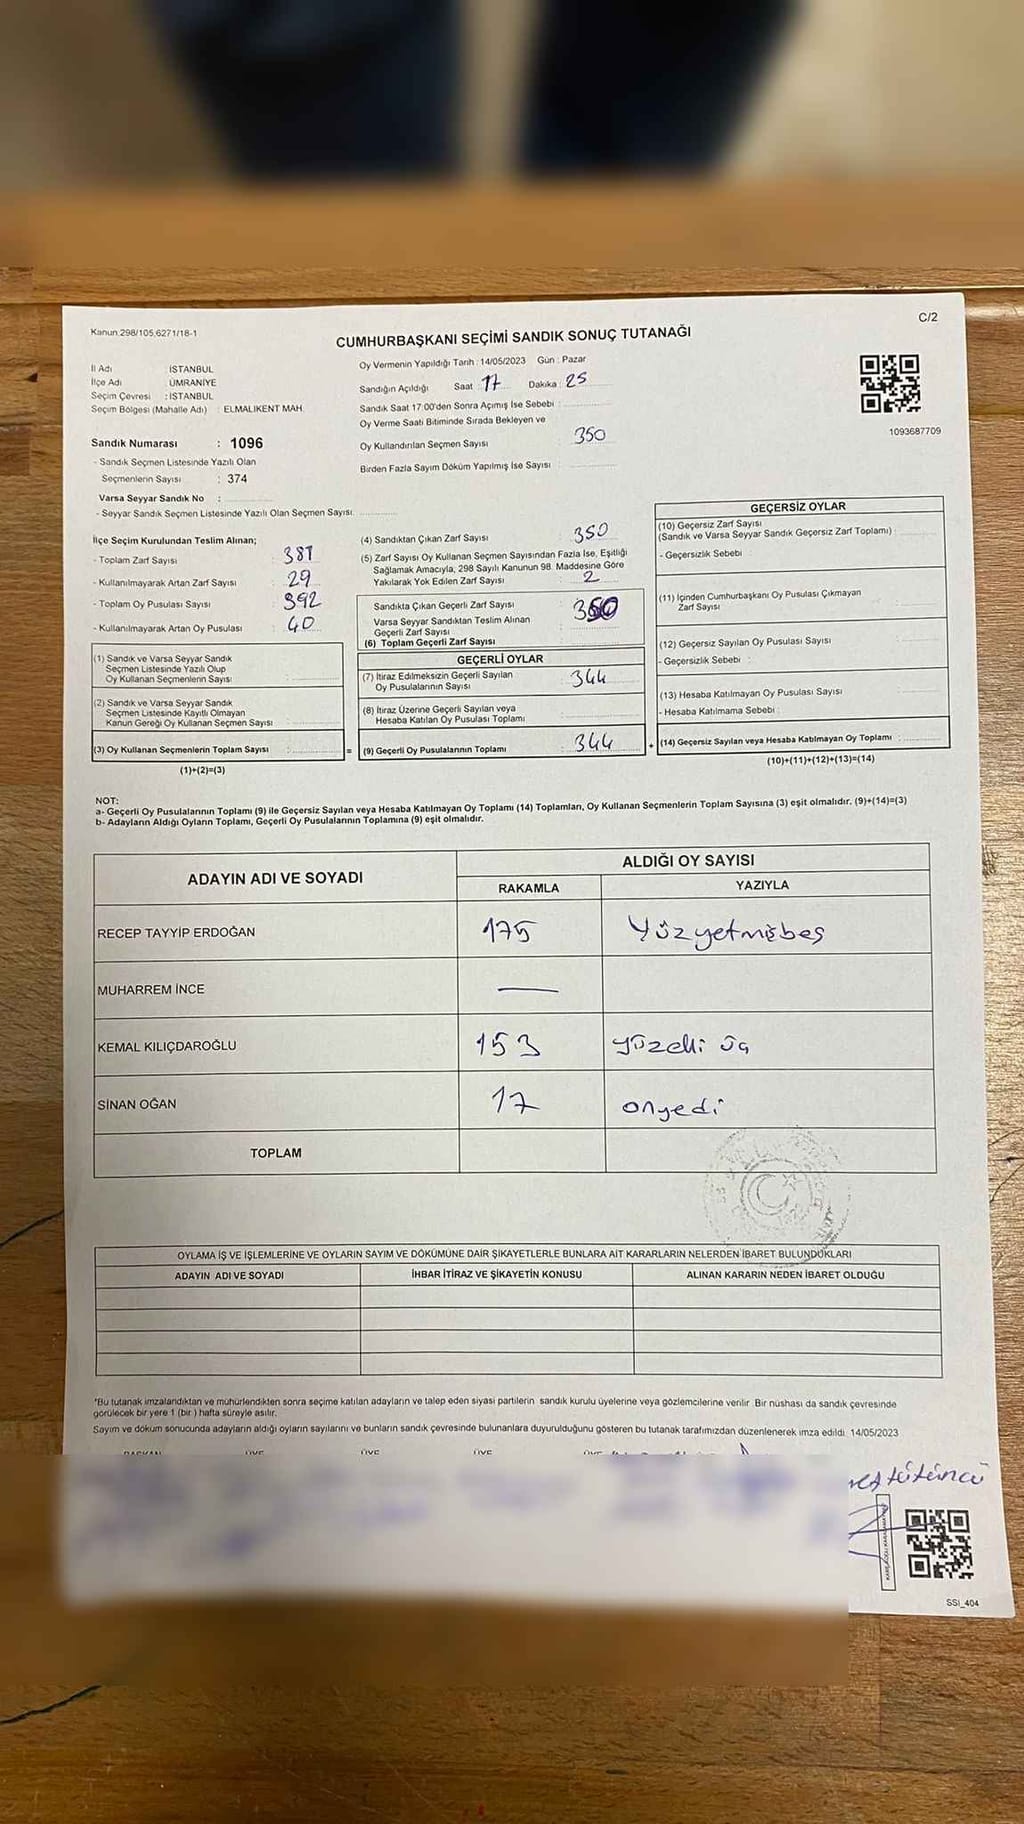 Kanun 298/105,6271/18-1
C/2
CUMHURBAŞKANI SEÇİMİ SANDIK SONUÇ TUTANAĞI
İl Adı : İSTANBUL
İlçe Adı : ÜMRANİYE
Seçim Çevresi : İSTANBUL
Seçim Bölgesi (Mahalle Adı) : ELMALIKENT MAH.
Sandık Numarası : 1096
- Sandık Seçmen Listesinde Yazılı Olan
Seçmenlerin Sayısı : 374
Varsa Seyyar Sandık No :
- Seyyar Sandık Seçmen Listesinde Yazılı Olan Seçmen Sayısı:
Oy Vermenin Yapıldığı Tarih : 14/05/2023 Gün : Pazar
Sandığın Açıldığı Saat 17 Dakika : 25
Sandık Saat 17:00'den Sonra Açımış İse Sebebi :
Oy Verme Saati Bitiminde Sırada Bekleyen ve
Oy Kullandırılan Seçmen Sayısı : 350
Birden Fazla Sayım Döküm Yapılmış İse Sayısı :
1093687709
İlçe Seçim Kurulundan Teslim Alınan;
- Toplam Zarf Sayısı : 381
- Kullanılmayarak Artan Zarf Sayısı : 29
- Toplam Oy Pusulası Sayısı : 392
- Kullanılmayarak Artan Oy Pusulası : 40
(1) Sandık ve Varsa Seyyar Sandık
Seçmen Listesinde Yazılı Olup
Oy Kullanan Seçmenlerin Sayısı :
(2) Sandık ve Varsa Seyyar Sandık
Seçmen Listesinde Kayıtlı Olmayan
Kanun Gereği Oy Kullanan Seçmen Sayısı :
(3) Oy Kullanan Seçmenlerin Toplam Sayısı : =
(1)+(2)=(3)
(4) Sandıktan Çıkan Zarf Sayısı : 350
(5) Zarf Sayısı Oy Kullanan Seçmen Sayısından Fazla İse, Eşitliği
Sağlamak Amacıyla, 298 Sayılı Kanunun 98. Maddesine Göre
Yakılarak Yok Edilen Zarf Sayısı : 2
Sandıkta Çıkan Geçerli Zarf Sayısı : 350
Varsa Seyyar Sandıktan Teslim Alınan
Geçerli Zarf Sayısı :
(6) Toplam Geçerli Zarf Sayısı
GEÇERLİ OYLAR
(7) İtiraz Edilmeksizin Geçerli Sayılan
Oy Pusulalarının Sayısı : 344
(8) İtiraz Üzerine Geçerli Sayılan veya
Hesaba Katılan Oy Pusulası Toplamı :
(9) Geçerli Oy Pusulalarının Toplamı : 344 +
GEÇERSİZ OYLAR
(10) Geçersiz Zarf Sayısı
(Sandık ve Varsa Seyyar Sandık Geçersiz Zarf Toplamı) :
- Geçersizlik Sebebi :
(11) İçinden Cumhurbaşkanı Oy Pusulası Çıkmayan
Zarf Sayısı :
(12) Geçersiz Sayılan Oy Pusulası Sayısı :
- Geçersizlik Sebebi :
(13) Hesaba Katılmayan Oy Pusulası Sayısı :
- Hesaba Katılmama Sebebi :
(14) Geçersiz Sayılan veya Hesaba Katılmayan Oy Toplamı :
(10)+(11)+(12)+(13)=(14)
NOT:
a- Geçerli Oy Pusulalarının Toplamı (9) ile Geçersiz Sayılan veya Hesaba Katılmayan Oy Toplamı (14) Toplamları, Oy Kullanan Seçmenlerin Toplam Sayısına (3) eşit olmalıdır. (9)+(14)=(3)
b- Adayların Aldığı Oyların Toplamı, Geçerli Oy Pusulalarının Toplamına (9) eşit olmalıdır.
ADAYIN ADI VE SOYADI
ALDIĞI OY SAYISI
RAKAMLA YAZIYLA
RECEP TAYYİP ERDOĞAN 175 Yüzyetmişbeş
MUHARREM İNCE —
KEMAL KILIÇDAROĞLU 153 yüzelli üç
SİNAN OĞAN 17 onyedi
TOPLAM
OYLAMA İŞ VE İŞLEMLERİNE VE OYLARIN SAYIM VE DÖKÜMÜNE DAİR ŞİKAYETLERLE BUNLARA AİT KARARLARIN NELERDEN İBARET BULUNDUKLARI
ADAYIN ADI VE SOYADI İHBAR İTİRAZ VE ŞİKAYETİN KONUSU ALINAN KARARIN NEDEN İBARET OLDUĞU
*Bu tutanak imzalandıktan ve mühürlendikten sonra seçime katılan adayların ve talep eden siyasi partilerin sandık kurulu üyelerine veya gözlemcilerine verilir. Bir nüshası da sandık çevresinde
görülecek bir yere 1 (bir) hafta süreyle asılır.
Sayım ve döküm sonucunda adayların aldığı oyların sayılarını ve bunların sandık çevresinde bulunanlara duyurulduğunu gösteren bu tutanak tarafımızdan düzenlenerek imza edildi. 14/05/2023
BAŞKAN ÜYE ÜYE ÜYE ÜYE
tütüncü
SSI_404